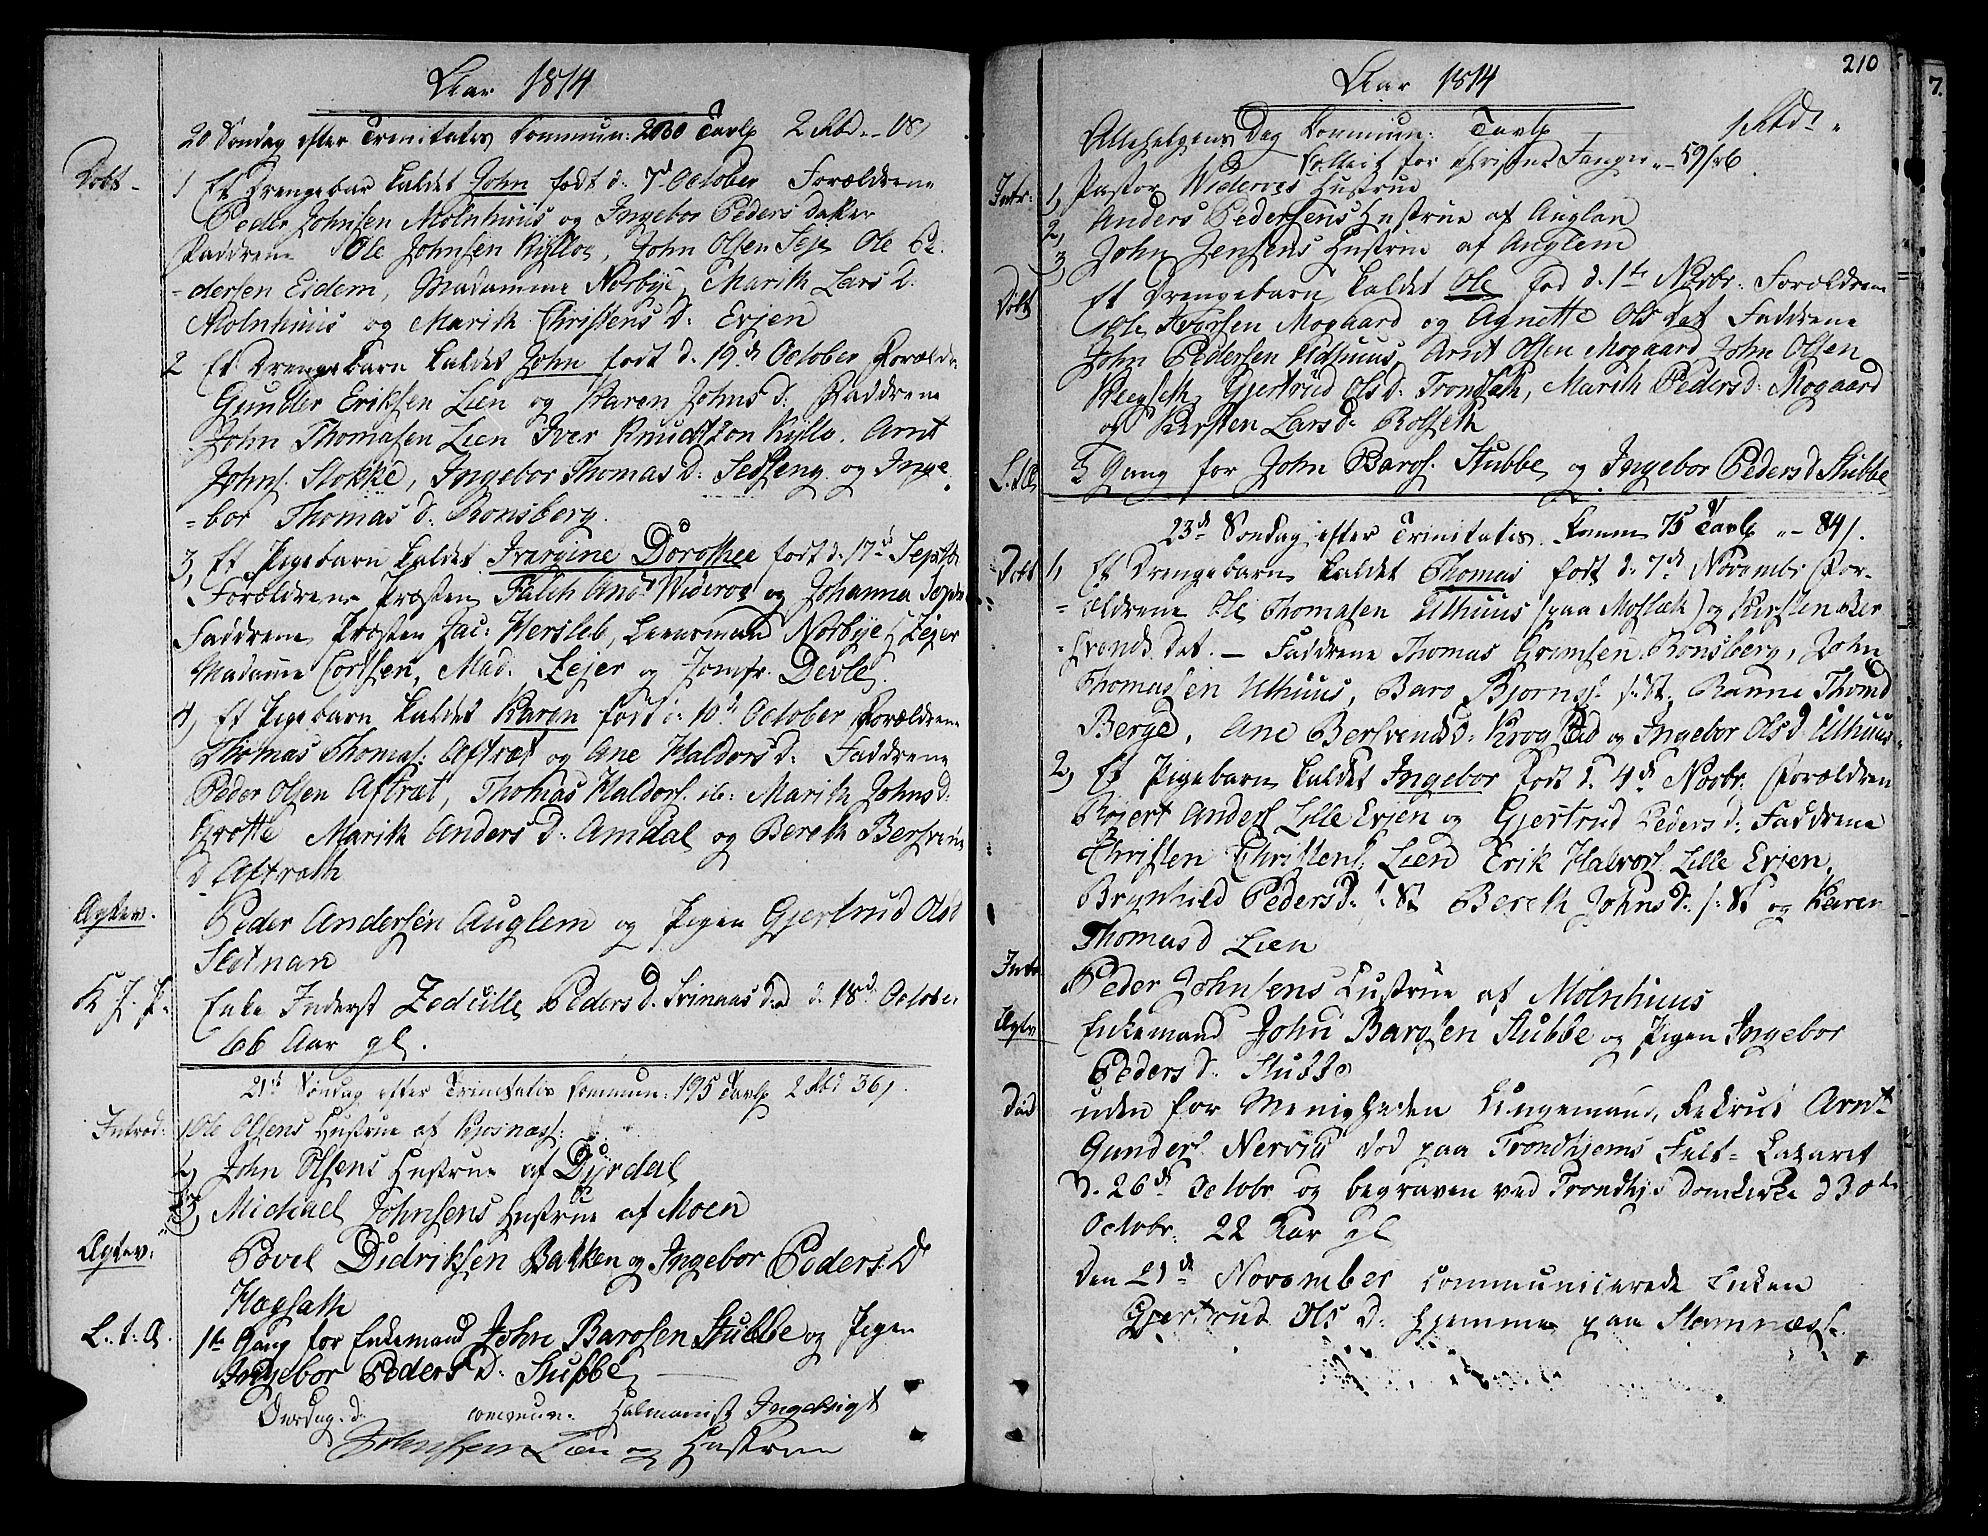 Aar 1814
20 Søndag efter Trinitatis Commun: Tavlp 2 Rbd.
Døbt - 1 Et Drengebar kaldet John født d. 7d October Forældrene
Peder Johnsen Molnhuus og Ingebor Peders Datter
Faddrene Ole Johnsen Kyllo, John Olsen Seje Ole Pe-
-dersen Eidem, Madamme Norbye, Marith Lars D.
Molnhuus og Marith Christens D. Evjen
2 Et Drengebarn kaldet John født d. 19d October Forældr.
Gunder Eriksen Lien og Karen Johns d: Faddrene
John Thomasen Lien Iver Knudtson Kyllo. Arnt
Johns. Stokke, Ingebor Thomas D: Selseng og Inge
-bor Thomas d. Ronsberg.
3, Et Pigebarn kaldet Dorothea født d. 17d Septbr
Forældrene Præsten Falch And. Widerøe og Johanna
Faddrene Præsten Jac: Hersleb, Leensmand Norbye, Lejer
Madame Cortsen, Mad. Lejer og Jomfr. Devle.
4, Et Pigebarn kaldet Karen født d. 10d October Forældrene
Thomas Thomas. Aftræt og Ane Haldors d: Faddrene
Peder Olsen Aftræt, Thomas Haldors. ib: Marith Johns d:
Grøtte Marith Anders D: Amdal og Bereth Bersvens
d. Aftræth
Ægtev. Peder Andersen Auglem og Pigen Gjertrud Olsd
Slotnan
K J. P. Enke Inderst Zedeille Peders d. d. 18d October
66 Aar gl.
21d Søndag efter Trinitatis Commun: 195 Tavlp 2 Rbd 36
Introd: 1 Ole Olsens Hustrue af Kjosnæss:
2, John Olsens Hustrue af Dyrdal
3, Michael Johnsens Hustrue af Moen
Ægtev: Povel Didriksen Bakken og Ingebor Peders D
Hogsath
L. t. Æ. 1te Gang for Enkemand John Barosen Stubbe og Pigen
Ingebor Peders D: Stubbe
Onsdag. d. commun: Huusmand Ingebrigt
Johnsen Lien og Hustrue
210
Aar 1814
Allehelgens Dag Commun: Tavlp 1 Rbd
Collect for Fanger
Intr: 1, Pastor Widerøes Hustrue
2, Anders Pedersens Hustrue af Auglan
3, John Jensens Hustrue af Auglem
Døbt Et Drengebarn kaldet Ole fød d. 1te Novbr. Forældrene
Ole Iversen Mogaard og Agnette Ols Dat Faddrene
John Pedersen Uthuus, Arnt Olsen Mogaard John Olsen
Gjertrud Ols d: Trondseth, Marith Peders d: Mogaard
og Kirsten Lars d. Rolseth
L. t. Æ. Gang for John Baros. Stubbe og Ingebor Peders d Stubbe
23d Søndag efter Trinitatis. Comm 75 Tavlp - 84
Døbt 1, Et Drengebarn kaldet Thomas født d. 7d Novembr For-
-ældrene Ole Thomasen Uthuus (paa Moslet) og Kersten Ber
-svends Dat. - Faddrene Thomas Gremsen Ronsberg, John
Thomassen Uthuus, Baro Bjørns. s: St, Ranni Thomd
Berge, Ane Bersvends d: Krogstad og Ingebor Ols d Uthuus
2, Et Pigebarn kaldet Ingebor født d. 4d Novbr. Forældren
Rojert Anders. Lille Evjen og Gjertrud Peders d: Faddrene
Christen Christens. Lien Erik Halvors. Lille Evjen
Brynhild Peders d: s: St Bereth Johns d: s: St og Karen
Thomas d Lien
Intr Peder Johnsens Hustrue af Molnhuus
Ægtv Enkemand John Barosen Stubbe og Pigen Ingebor
Peders d. Stubbe
Død uden for Menigheden Ungemand, Rekrut Arnt
Gunders. Nervig død paa Trondhjems Felt- Lazaret
d. 26d Octobr og begraven ved Trondhj. Domkirke d 30te
Octobr. 22 Aar gl
Den 21d November communicerede Enken
Gjertrud Ols D: hjemme paa Stamnæss.